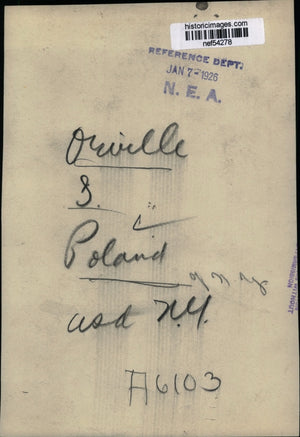 historicimages.com
nef54278
REFERENCE DEPT.
JAN 7-1926
N. E. A.
Orville
S.
Poland
asd N.Y.
A6103